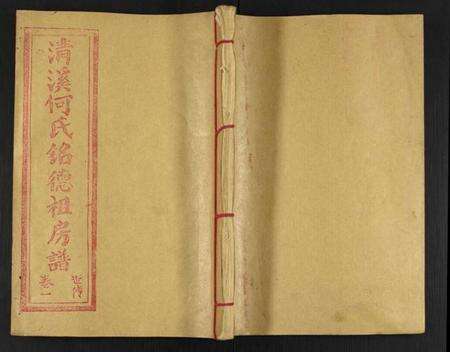 清溪何氏銘德祖房譜
世傳
卷一